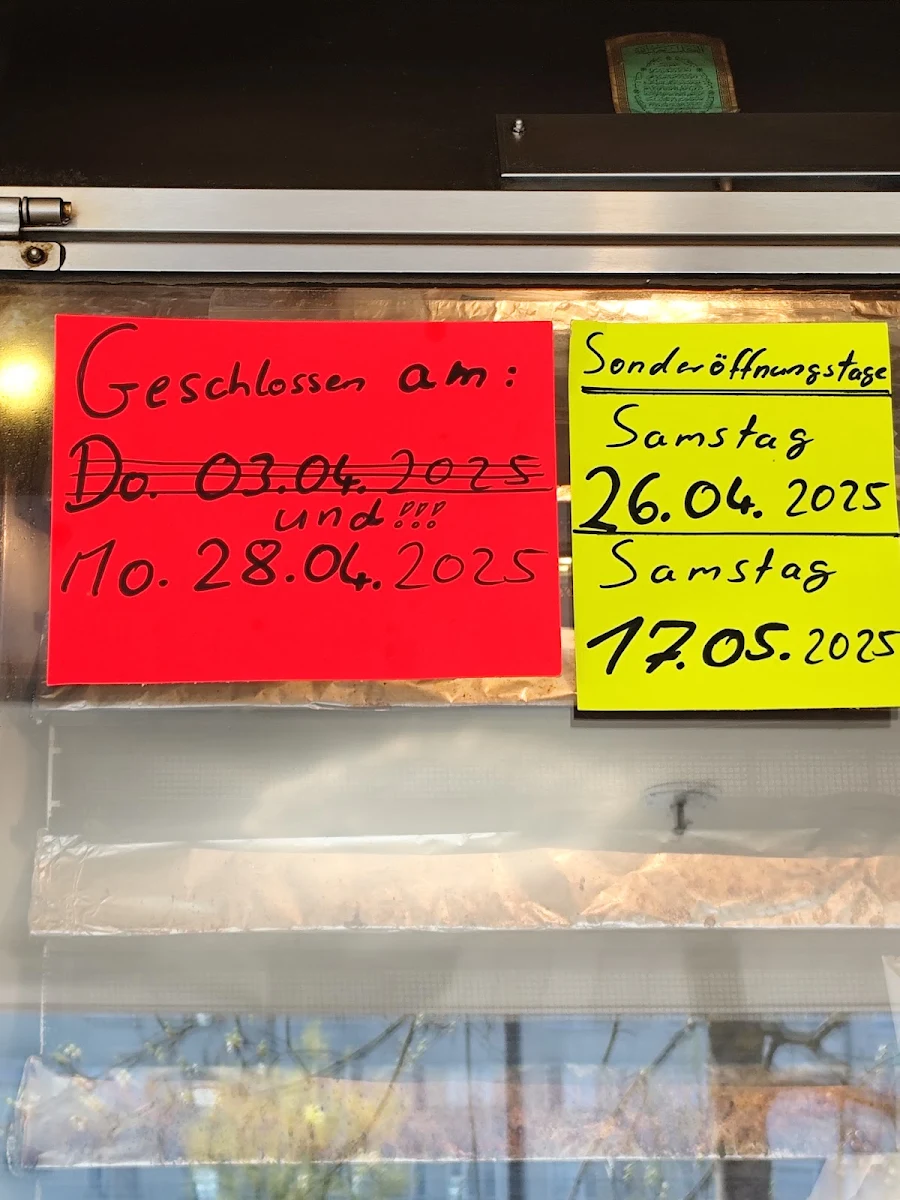 Geschlossen am:
Do. 03.04. 2025
und !!!
Mo. 28.04. 2025
Sonderöffnungstage
Samstag
26.04. 2025
Samstag
17.05. 2025